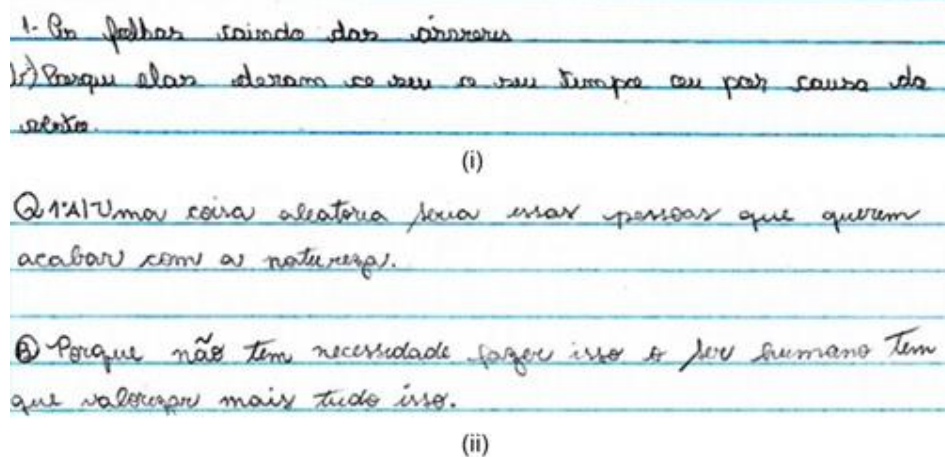 1- As folhas caindo das árvores
b) Porque elas deram ce seu o seu tempo ou por causa do
vento.
(i)
Q 1ªA) Uma coisa aleatoria seria essas pessoas que querem
acabar com a natureza.
B Porque não tem necessidade fazer isso o ser humano tem
que valorizar mais tudo isso.
(ii)